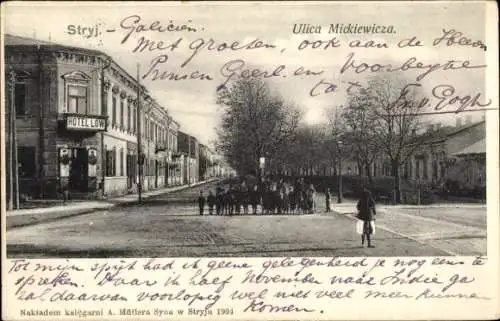 Stryj. - Galicien.
Ulica Mickiewicza.
Met groeten, ook aan de Heeren
Prinsen Geerl. en Voorbeyte
tot
v. Gogh
HOTEL
Tot mijn spijt had ik geene gelegenheid je nog eens te
spreken. Daar ik half November naar Indië ga
zal daarvan voorlopig wel niet veel meer kunnen
komen.
Nakładem księgarni A. Müllera Syna w Stryju 1904